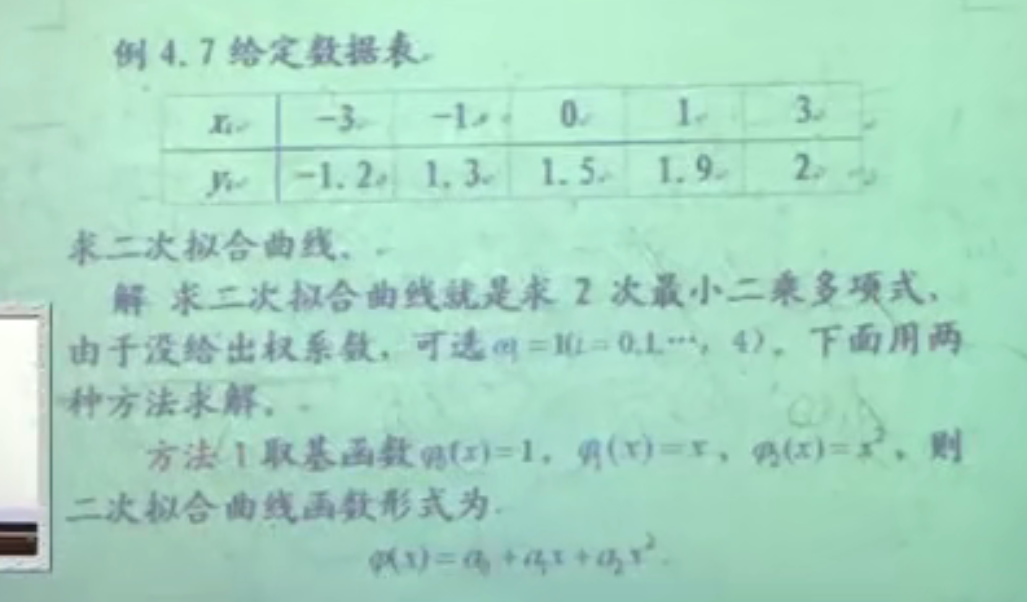 例 4.7 给定数据表
xᵢ -3 -1 0 1 3
yᵢ -1.2 1.3 1.5 1.9 2
求二次拟合曲线.
解 求二次拟合曲线就是求 2 次最小二乘多项式,
由于没给出权系数, 可选 ωᵢ=1(i=0,1,…, 4). 下面用两
种方法求解.
方法 1 取基函数 φ₀(x)=1, φ₁(x)=x, φ₂(x)=x², 则
二次拟合曲线函数形式为
φ(x)=a₀+a₁x+a₂x².